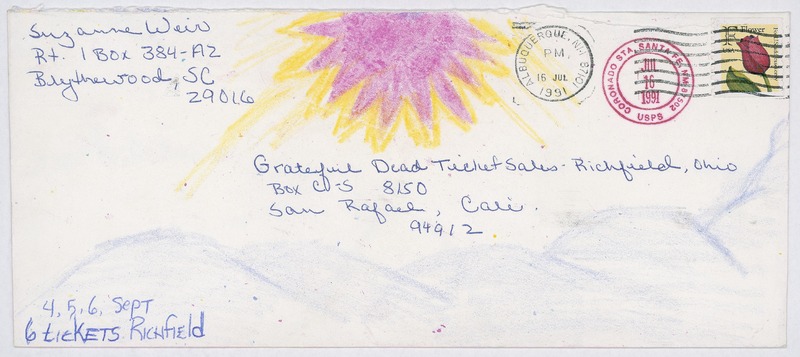 Suzanne Weir
Rt. 1 Box 384-A2
Blythewood, SC
29016
ALBUQUERQUE, NM 87101
PM
16 JUL
1991
CORONADO STA, SANTA FE, NM 87502
JUL
16
1991
USPS
Flower
Grateful Dead Ticket Sales - Richfield, Ohio
Box CS-5 8150
San Rafael, Cali.
94912
4, 5, 6, Sept
6 tickets Richfield